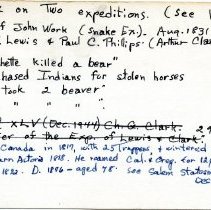 on Two expeditions. (See
of John Work (Snake Ex.). Aug. 1831
Lewis & Paul C. Phillips. (Arthur Clark
killed a bear"
chased Indians for stolen horses
took 2 beaver"
" " "
XLV (Dec. 1944) Ch. G. Clark.
of the Exp. of Lewis & Clark
Canada in 1817, with 25 Trappers, & wintered
1818. He named
D. 1896 - aged 78. See Salem Statesman